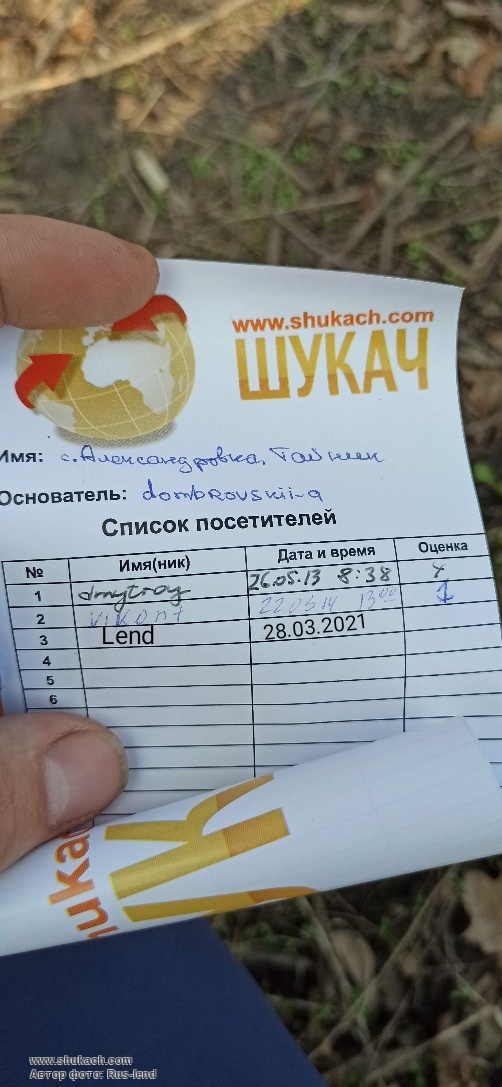 www.shukach.com
ШУКАЧ
Имя: с.Александровка, Тайник
Основатель: dombrovskii-a
Список посетителей
№ Имя(ник) Дата и время Оценка
1 dmytroy 26.05.13 8:38
2 vikont 22 05 14 13 00 1
3 Lend 28.03.2021
4
5
6
www.shukach.com
Автор фото: Rus-lend